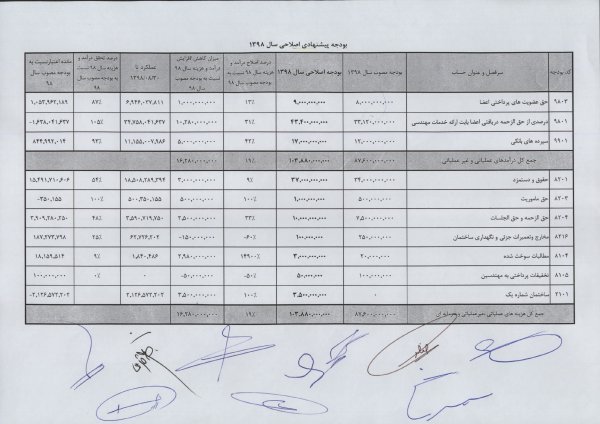 بودجه پیشنهادی اصلاحی سال ۱۳۹۸
کد بودجه سرفصل و عنوان حساب بودجه مصوب سال ۱۳۹۸ بودجه اصلاحی سال ۱۳۹۸ درصد اصلاح درآمد و هزینه سال ۹۸ نسبت به بودجه مصوب سال ۹۸ میزان کاهش افزایش درآمد و هزینه سال ۹۸ نسبت به بودجه مصوب سال ۹۸ عملکرد تا ۱۳۹۸/۰۸/۳۰ درصد تحقق درآمد و هزینه سال ۹۸ نسبت به بودجه مصوب سال ۹۸ مانده اعتبار نسبت به بودجه مصوب سال ۹۸
۹۸۰۳ حق عضویت های پرداختی اعضا ۸,۰۰۰,۰۰۰,۰۰۰ ۹,۰۰۰,۰۰۰,۰۰۰ ۱۳% ۱,۰۰۰,۰۰۰,۰۰۰ ۶,۹۴۶,۰۳۷,۸۱۱ ۸۷% ۱,۰۵۳,۹۶۲,۱۸۹
۹۸۰۱ درصدی از حق الزحمه دریافتی اعضا بابت ارائه خدمات مهندسی ۳۳,۱۲۰,۰۰۰,۰۰۰ ۴۳,۴۰۰,۰۰۰,۰۰۰ ۳۱% ۱۰,۲۸۰,۰۰۰,۰۰۰ ۳۴,۷۵۸,۰۴۱,۶۳۷ ۱۰۵% -۱,۶۳۸,۰۴۱,۶۳۷
۹۹۰۱ سپرده های بانکی ۱۲,۰۰۰,۰۰۰,۰۰۰ ۱۷,۰۰۰,۰۰۰,۰۰۰ ۴۲% ۵,۰۰۰,۰۰۰,۰۰۰ ۱۱,۱۵۵,۰۰۷,۹۸۶ ۹۳% ۸۴۴,۹۹۲,۰۱۴
جمع کل درآمدهای عملیاتی و غیر عملیاتی ۸۷,۶۰۰,۰۰۰,۰۰۰ ۱۰۳,۸۸۰,۰۰۰,۰۰۰ ۱۹% ۱۶,۲۸۰,۰۰۰,۰۰۰
۸۲۰۱ حقوق و دستمزد ۳۴,۰۰۰,۰۰۰,۰۰۰ ۳۷,۰۰۰,۰۰۰,۰۰۰ ۹% ۳,۰۰۰,۰۰۰,۰۰۰ ۱۸,۵۰۸,۲۸۹,۳۹۴ ۵۴% ۱۵,۴۹۱,۷۱۰,۶۰۶
۸۲۰۳ حق ماموریت ۵۰۰,۰۰۰,۰۰۰ ۱,۰۰۰,۰۰۰,۰۰۰ ۱۰۰% ۵۰۰,۰۰۰,۰۰۰ ۵۰۰,۳۵۰,۱۵۵ ۱۰۰% -۳۵۰,۱۵۵
۸۲۰۴ حق الزحمه و حق الجلسات ۷,۵۰۰,۰۰۰,۰۰۰ ۱۰,۰۰۰,۰۰۰,۰۰۰ ۳۳% ۲,۵۰۰,۰۰۰,۰۰۰ ۳,۵۹۰,۷۱۹,۷۵۰ ۴۸% ۳,۹۰۹,۲۸۰,۲۵۰
۸۲۱۶ مخارج وتعمیرات جزئی و نگهداری ساختمان ۲۵۰,۰۰۰,۰۰۰ ۱۰۰,۰۰۰,۰۰۰ -۶۰% -۱۵۰,۰۰۰,۰۰۰ ۶۲,۷۲۶,۲۰۲ ۲۵% ۱۸۷,۲۷۳,۷۹۸
۸۱۰۴ مطالبات سوخت شده ۲۰,۰۰۰,۰۰۰ ۳,۰۰۰,۰۰۰,۰۰۰ ۱۴۹۰۰% ۲,۹۸۰,۰۰۰,۰۰۰ ۱,۸۴۰,۴۸۶ ۹% ۱۸,۱۵۹,۵۱۴
۸۱۰۵ تخفیفات پرداختی به مهندسین ۱۰۰,۰۰۰,۰۰۰ ۵۰,۰۰۰,۰۰۰ -۵۰% -۵۰,۰۰۰,۰۰۰ ۰ ۰% ۱۰۰,۰۰۰,۰۰۰
۲۱۰۱ ساختمان شماره یک ۰ ۳,۵۰۰,۰۰۰,۰۰۰ ۱۰۰% ۳,۵۰۰,۰۰۰,۰۰۰ ۲,۱۲۶,۵۷۲,۲۰۲ -۲,۱۲۶,۵۷۲,۲۰۲
جمع کل هزینه های عملیاتی ،غیرعملیاتی و سرمایه ای ۸۷,۶۰۰,۰۰۰,۰۰۰ ۱۰۳,۸۸۰,۰۰۰,۰۰۰ ۱۹% ۱۶,۲۸۰,۰۰۰,۰۰۰